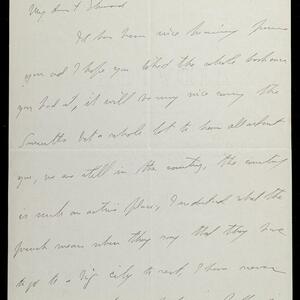 My dear Edward
It has been nice hearing from
you and I hope you liked the whole
you had at, it will be very nice
but a whole lot to hear all about
you, we are still in the country, the country
is such an active place, I understand what the
french mean when they say that they have
to go to a big city to rest I have never